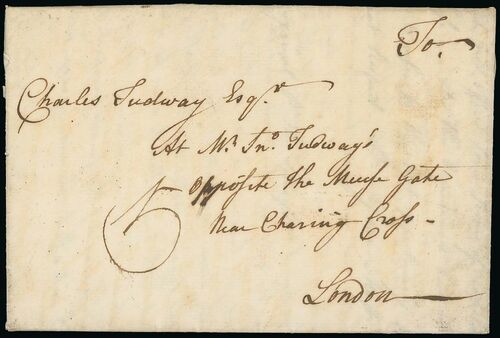 To
Charles Tudway Esqr
At Mr Jno Tudway's
opposite the Meuse Gate
Near Charing Cross
London